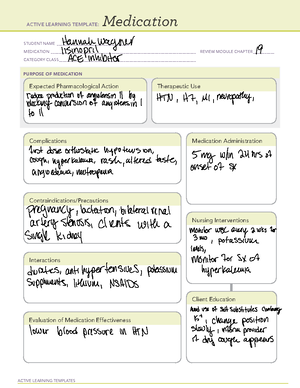 ACTIVE LEARNING TEMPLATE: Medication
STUDENT NAME Hannah Wagner
MEDICATION lisinopril REVIEW MODULE CHAPTER 19
CATEGORY CLASS ACE inhibitor
PURPOSE OF MEDICATION
Expected Pharmacological Action
reduce production of angiotensin II by
blocking conversion of angiotensin I
to II
Therapeutic Use
HTN, HF, MI, nephropathy,
Complications
first dose orthostatic hypotension,
cough, hyperkalemia, rash, altered taste,
angioedema, neutropenia
Medication Administration
5 mg w/in 24 hrs of
onset of sx
Contraindications/Precautions
pregnancy, lactation, bilateral renal
artery stenosis, clients with a
single kidney
Nursing Interventions
monitor WBC every 2 wks for
3 mo, potassium
levels,
monitor for sx of
hyperkalemia
Interactions
diuretics, anti hypertensives, potassium
supplements, lithium, NSAIDS
Client Education
avoid use of salt substitutes containing
K+, change position
slowly, inform provider
if dry cough appears
Evaluation of Medication Effectiveness
lower blood pressure in HTN
ACTIVE LEARNING TEMPLATES